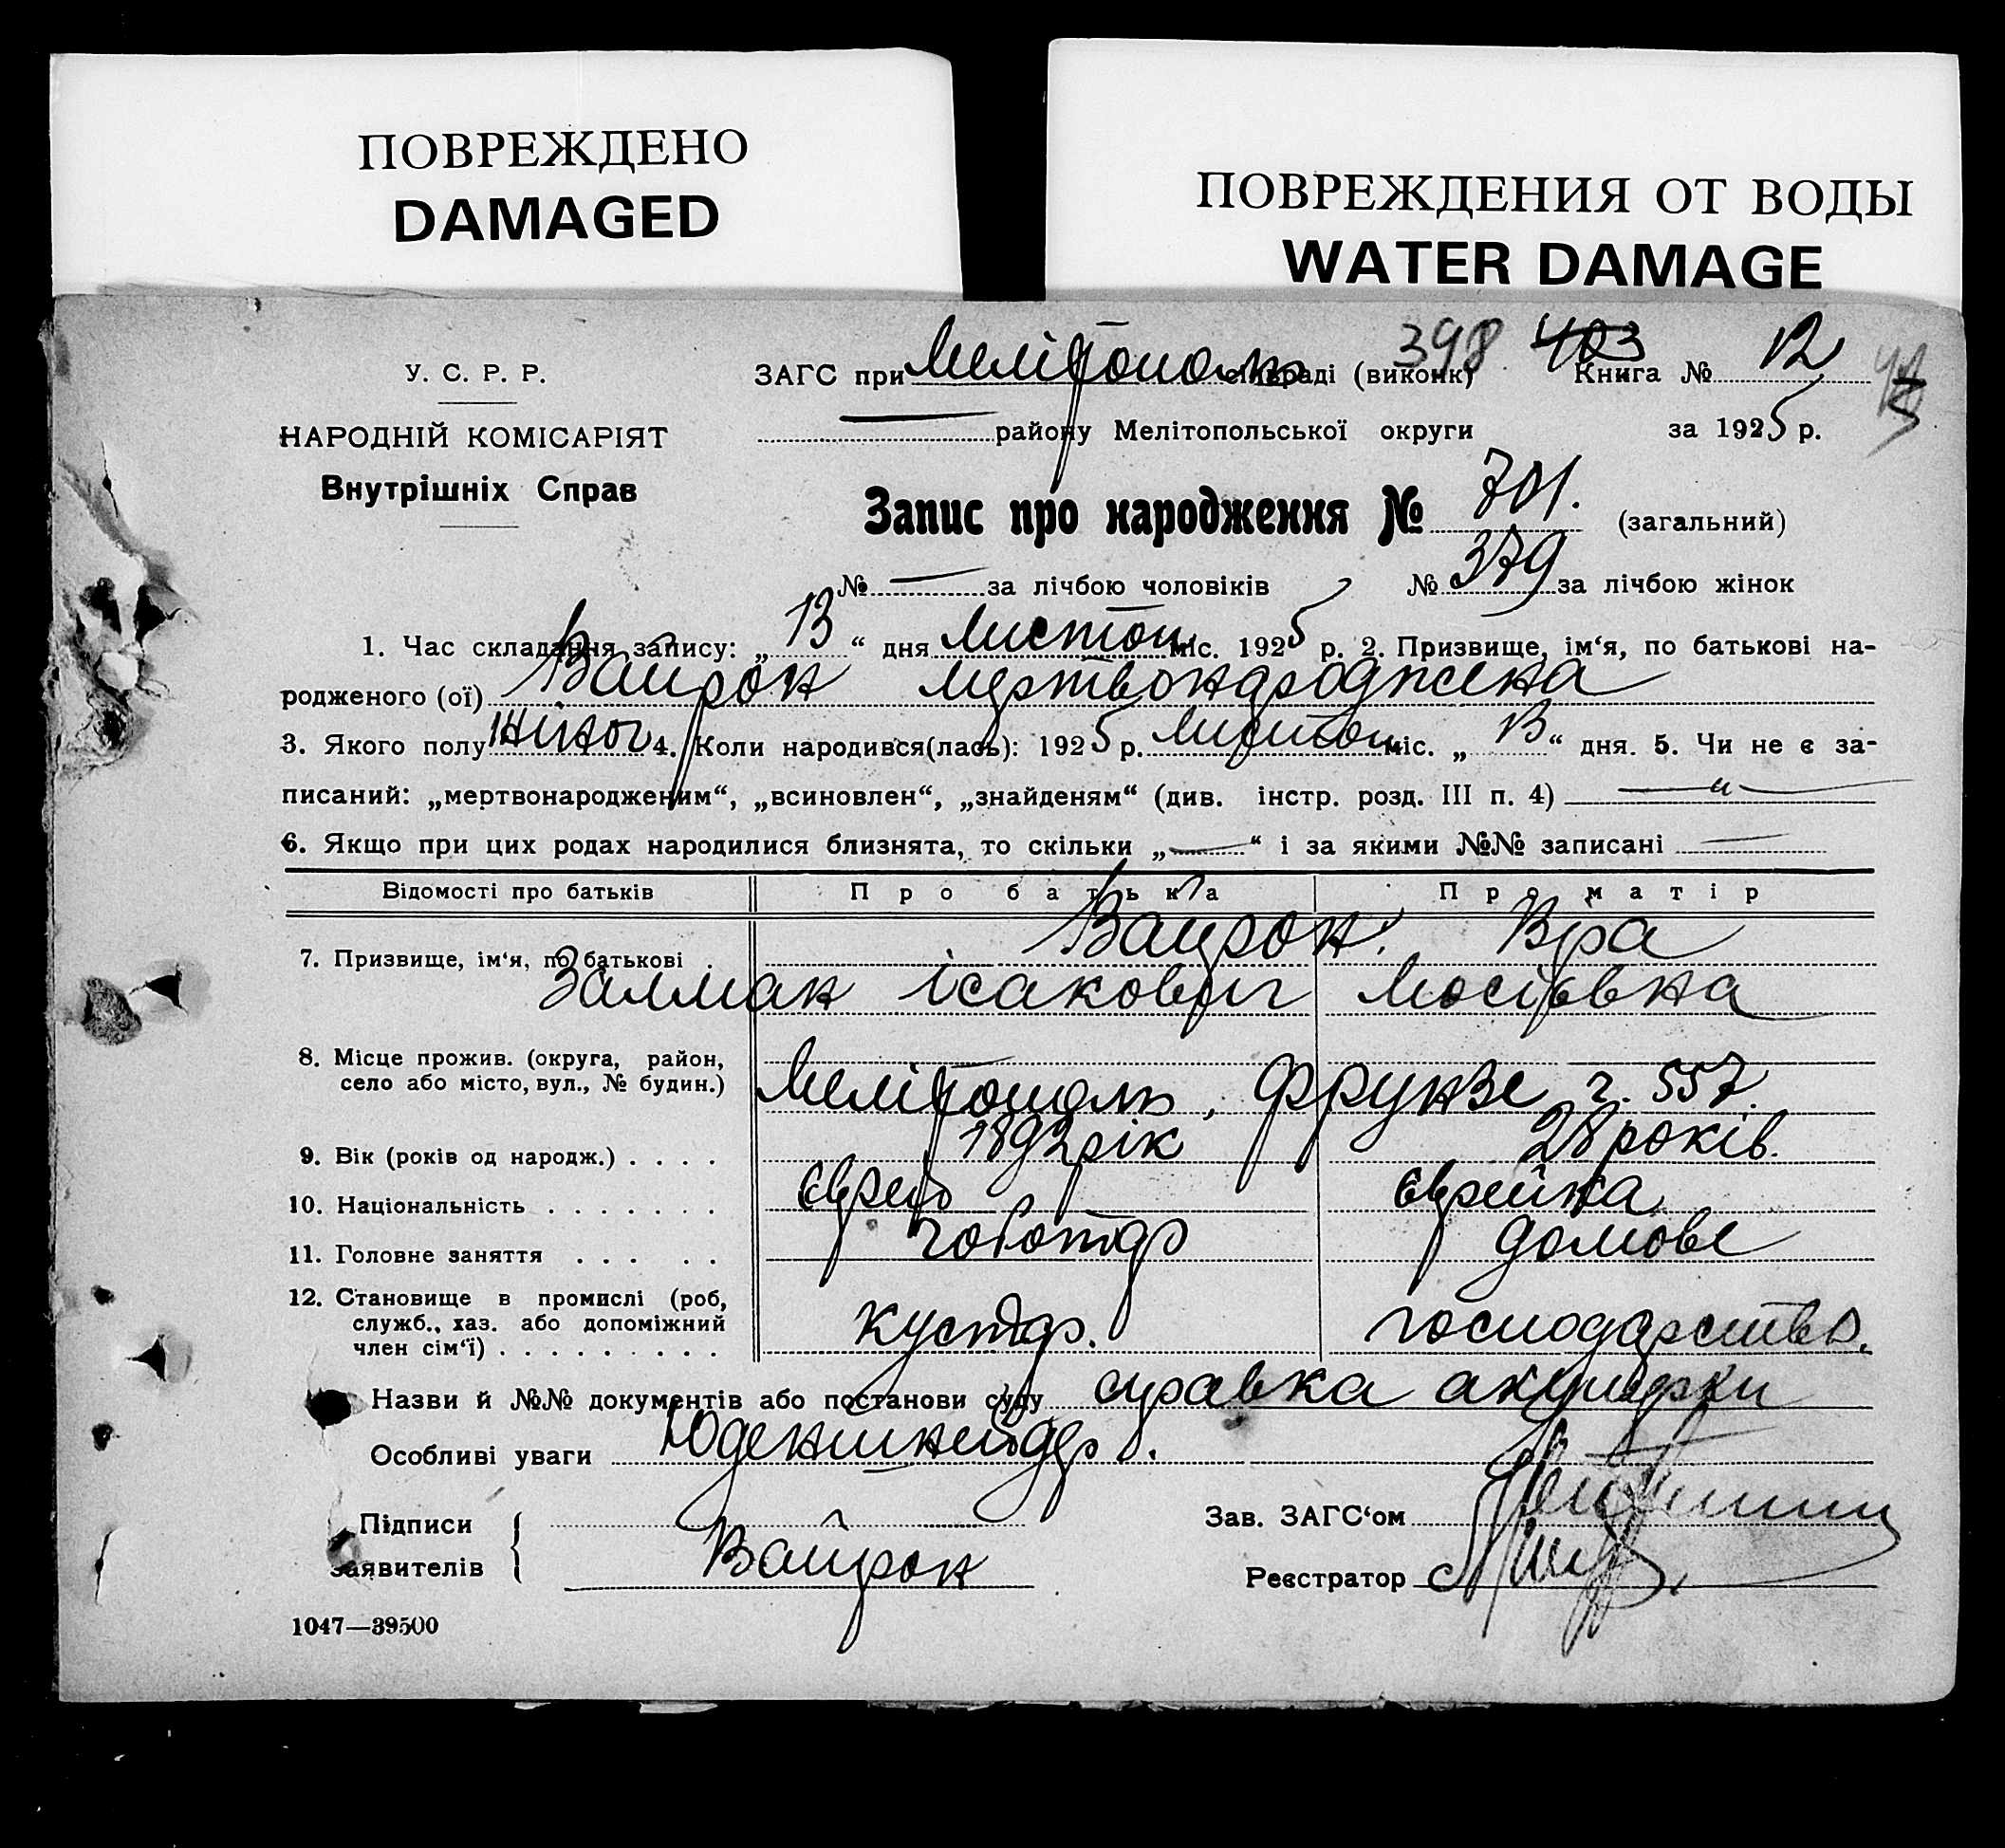 ПОВРЕЖДЕНО
DAMAGED
ПОВРЕЖДЕНИЯ ОТ ВОДЫ
WATER DAMAGE
398 403
У. С. Р. Р.
ЗАГС при Мелітополь сільраді (виконк) Книга № 12
НАРОДНІЙ КОМІСАРІЯТ
району Мелітопольської округи за 1925 р.
Внутрішніх Справ
Запис про народження № 701. (загальний)
№ — за лічбою чоловіків № 379 за лічбою жінок
1. Час складання запису: „13“ дня Листоп міс. 1925 р. 2. Призвище, ім‘я, по батькові на-
родженого (ої) Вайрох мертвонароджена
3. Якого полу жіноч 4. Коли народився(лась): 1925 р. Листоп міс. „13“ дня. 5. Чи не є за-
писаний: „мертвонародженим“, „всиновлен“, „знайденям“ (див. інстр. розд. III п. 4) — „ —
6. Якщо при цих родах народилися близнята, то скільки „—“ і за якими №№ записані —
Відомості про батьків Про батька Про матір
7. Призвище, ім‘я, по батькові Вайрох. Віра
Залман Ісакович Мосіївна
8. Місце прожив. (округа, район,
село або місто, вул., № будин.) Мелітополь, Фрунзе ч. 557.
9. Вік (років од народж.) . . . . 1892 рік 28 років.
10. Національність . . . . . . . Єврей Єврейка
11. Головне заняття . . . . . Чоботар домове
12. Становище в промислі (роб,
служб., хаз. або допоміжний
член сім‘ї) . . . . . . . . . кустар. господарство.
Назви й №№ документів або постанови суду справка акушерки
Особливі уваги Юденшнейдер.
Підписи
заявителів
Вайрох
Зав. ЗАГС‘ом
Реєстратор
1047—39500